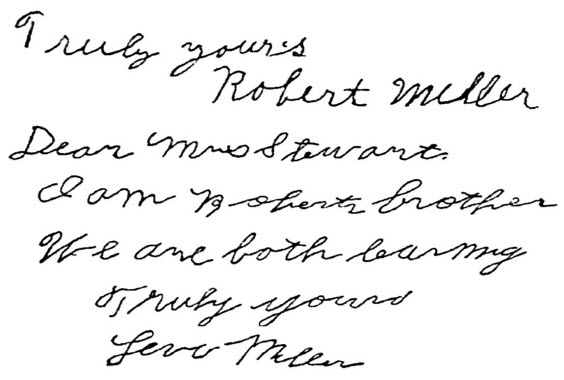 Truly yours
Robert Miller
Dear Mrs Stewart.
I am Roberts brother
We are both learning
Truly yours
Miller